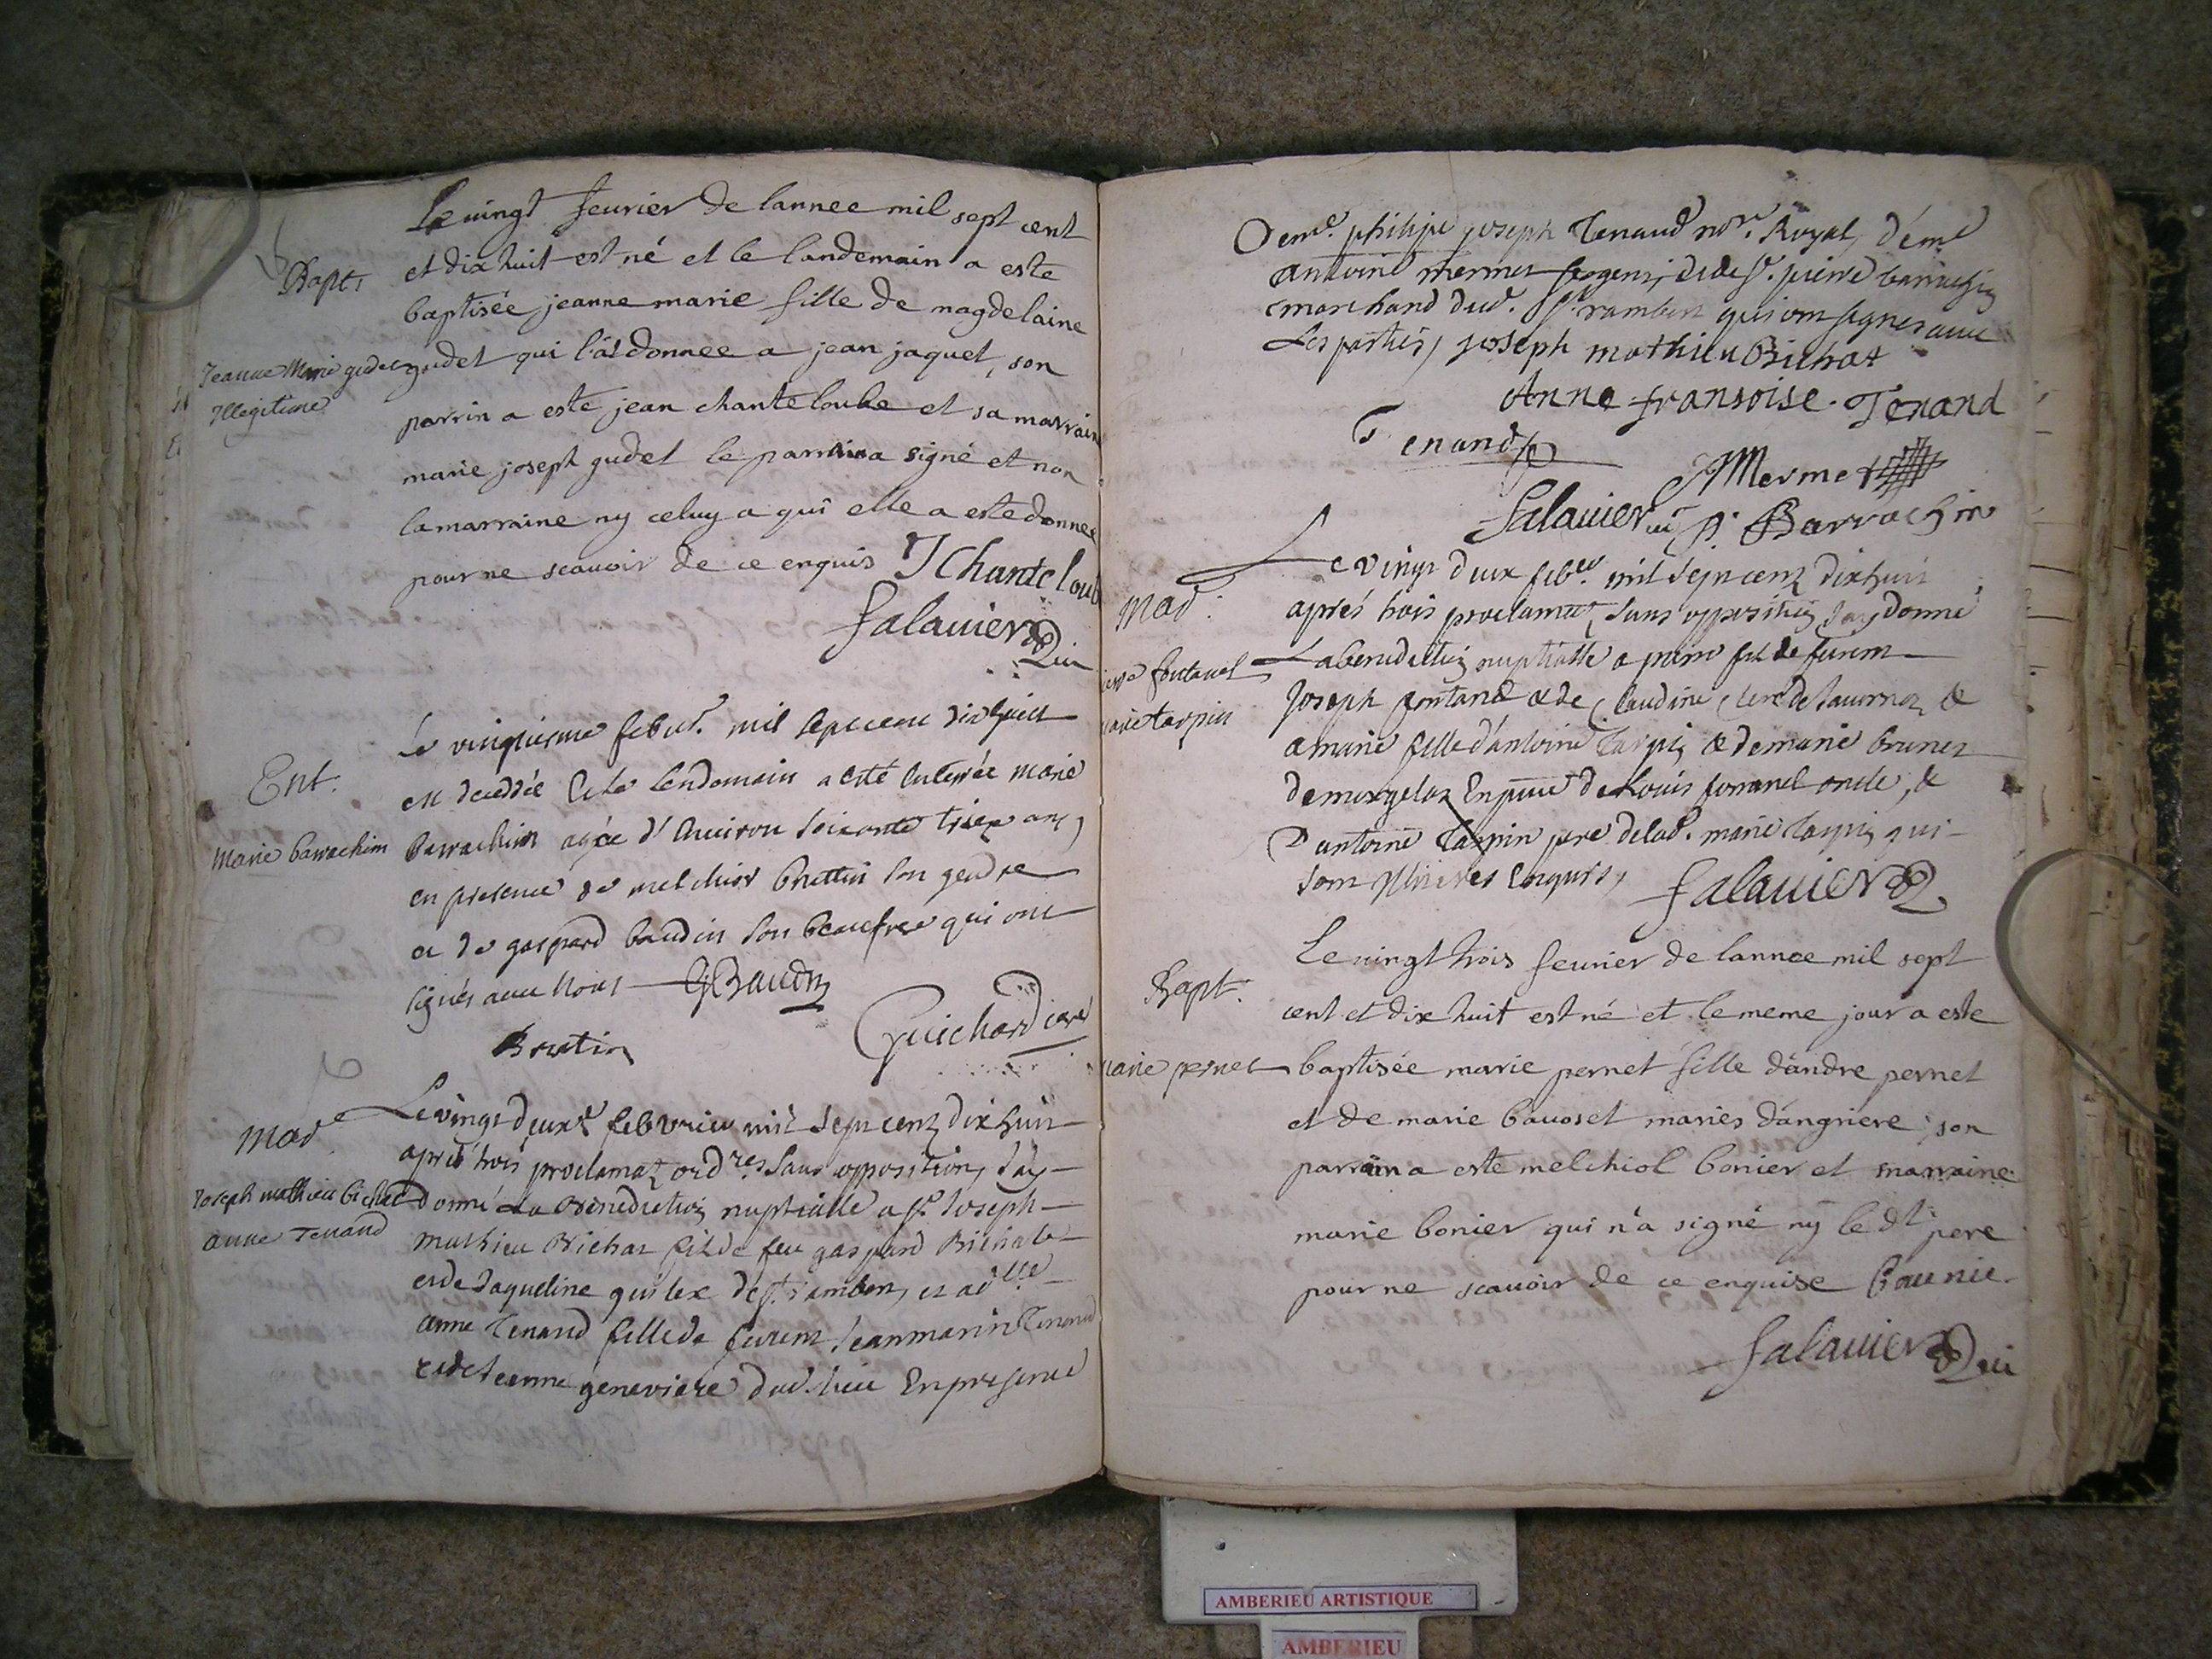 Le vingt feurier de lannee mil sept cent
Bapt.
et dix huit est né et le landemain a este
baptisée jeanne marie fille de magdelaine
Jeanne Marie gudet
Illegitime
gudet qui l'a donnee a jean jaquet, son
parrin a este jean chanteloube et sa marrain
marie joseph gudet le parrin a signé et non
la marraine ny celuy a qui elle a este donnee
pour ne scauoir de ce enquis J Chanteloub
Salauier
Ent.
Marie barrachim
Le vingtiesme feb. mil sept cent dix huict
est decedée et le lendemain a esté enterrée Marie
Barrachim agée d'enuiron soixante treize ans,
en presence de melchior brettin son gendre
et de gaspard baudin son beaufrere qui ont
signés auec nous G Baudin
Bretin
Guichard curé
Mad
Joseph mathieu bichat
anne Tenand
Le vingt deux febvrier mil sept cent dix huit
aprés trois proclamat ord.res sans opposition, J'ay
donné La Benediction nuptialle a sr Joseph
Mathieu Bichat fils de feu gaspard Bichat
et de Jaqueline de St rambert, et a d.lle
anne Tenand fille de Jean marin Tenand
et de Jeanne geneviere dud. lieu En presence
De me. philipe joseph Tenaud nore. Royal, de me
antoine mermet et de Sr. pierre barrachin
marchand dud. St rambert qui ont signes auec
Les parties, joseph mathieu Bichat
Anne fransoise Tenand
Tenand
Mermet
Salauier P. Barrachin
Mad.
fontanel
marie tarpin
Le vingt deux feb. mil sept cent dix huit
aprés trois proclamat. sans opposition J'ay donné
La benediction nuptialle a pierre fils de
Joseph fontanel et de Claudine Clerc de &
a marie fille d'antoine Tarpin & de marie brunet
de En pnce de Louis fontanel oncle, &
D'antoine Tarpin pere de lad. marie Tarpin qui
sont Illiteres Enquis, Salauier
Bapt.
marie pernet
Le vingt trois feurier de lannee mil sept
cent et dix huit est né et le meme jour a este
baptisée marie pernet fille d'andre pernet
et de marie bauoset mariés d'angriere, son
parrain a este melchiol bonier et marraine
marie bonier qui n'a signé ny le dt. pere
pour ne scauoir de ce enquise Baunie
Salauier
AMBERIEU ARTISTIQUE
AMBERIEU